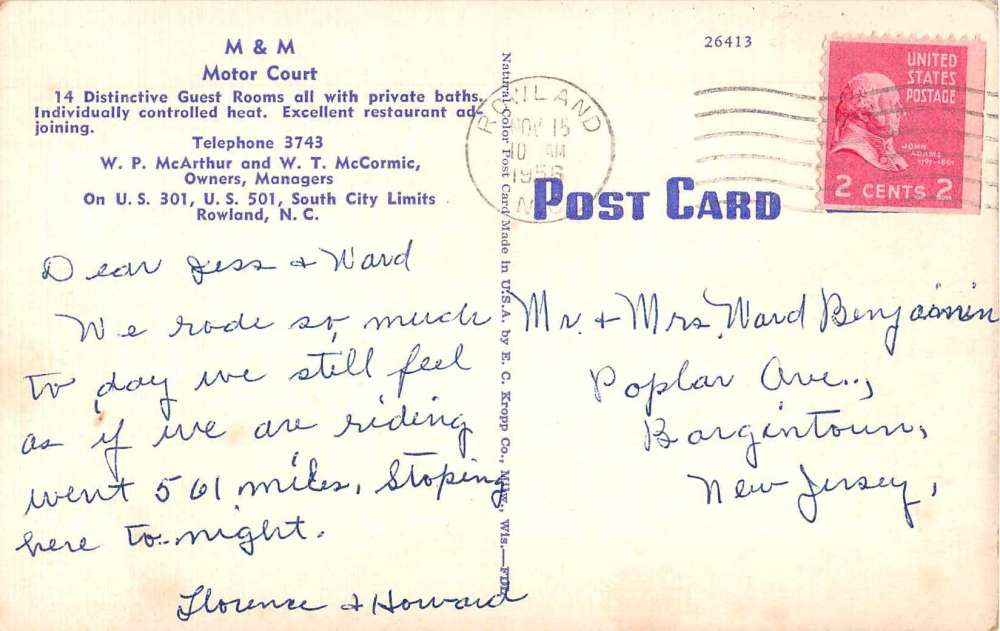 M & M
Motor Court
14 Distinctive Guest Rooms all with private baths.
Individually controlled heat. Excellent restaurant ad-
joining.
Telephone 3743
W. P. McArthur and W. T. McCormic,
Owners, Managers
On U. S. 301, U. S. 501, South City Limits
Rowland, N. C.
Dear Jess & Ward
We rode so much
to day we still feel
as if we are riding
went 501 miles, Stoping
here to-night.
Florence & Howard
Natural Color Post Card Made in U. S. A. by E. C. Kropp Co., Milw., Wis.—
26413
ROWLAND
NOV 15
10 AM
1956
N.C.
UNITED
STATES
POSTAGE
JOHN
ADAMS
1797-1801
2 CENTS 2
POST CARD
Mr. & Mrs. Ward Benjamin
Poplar Ave.,
Bargintown,
New Jersey,